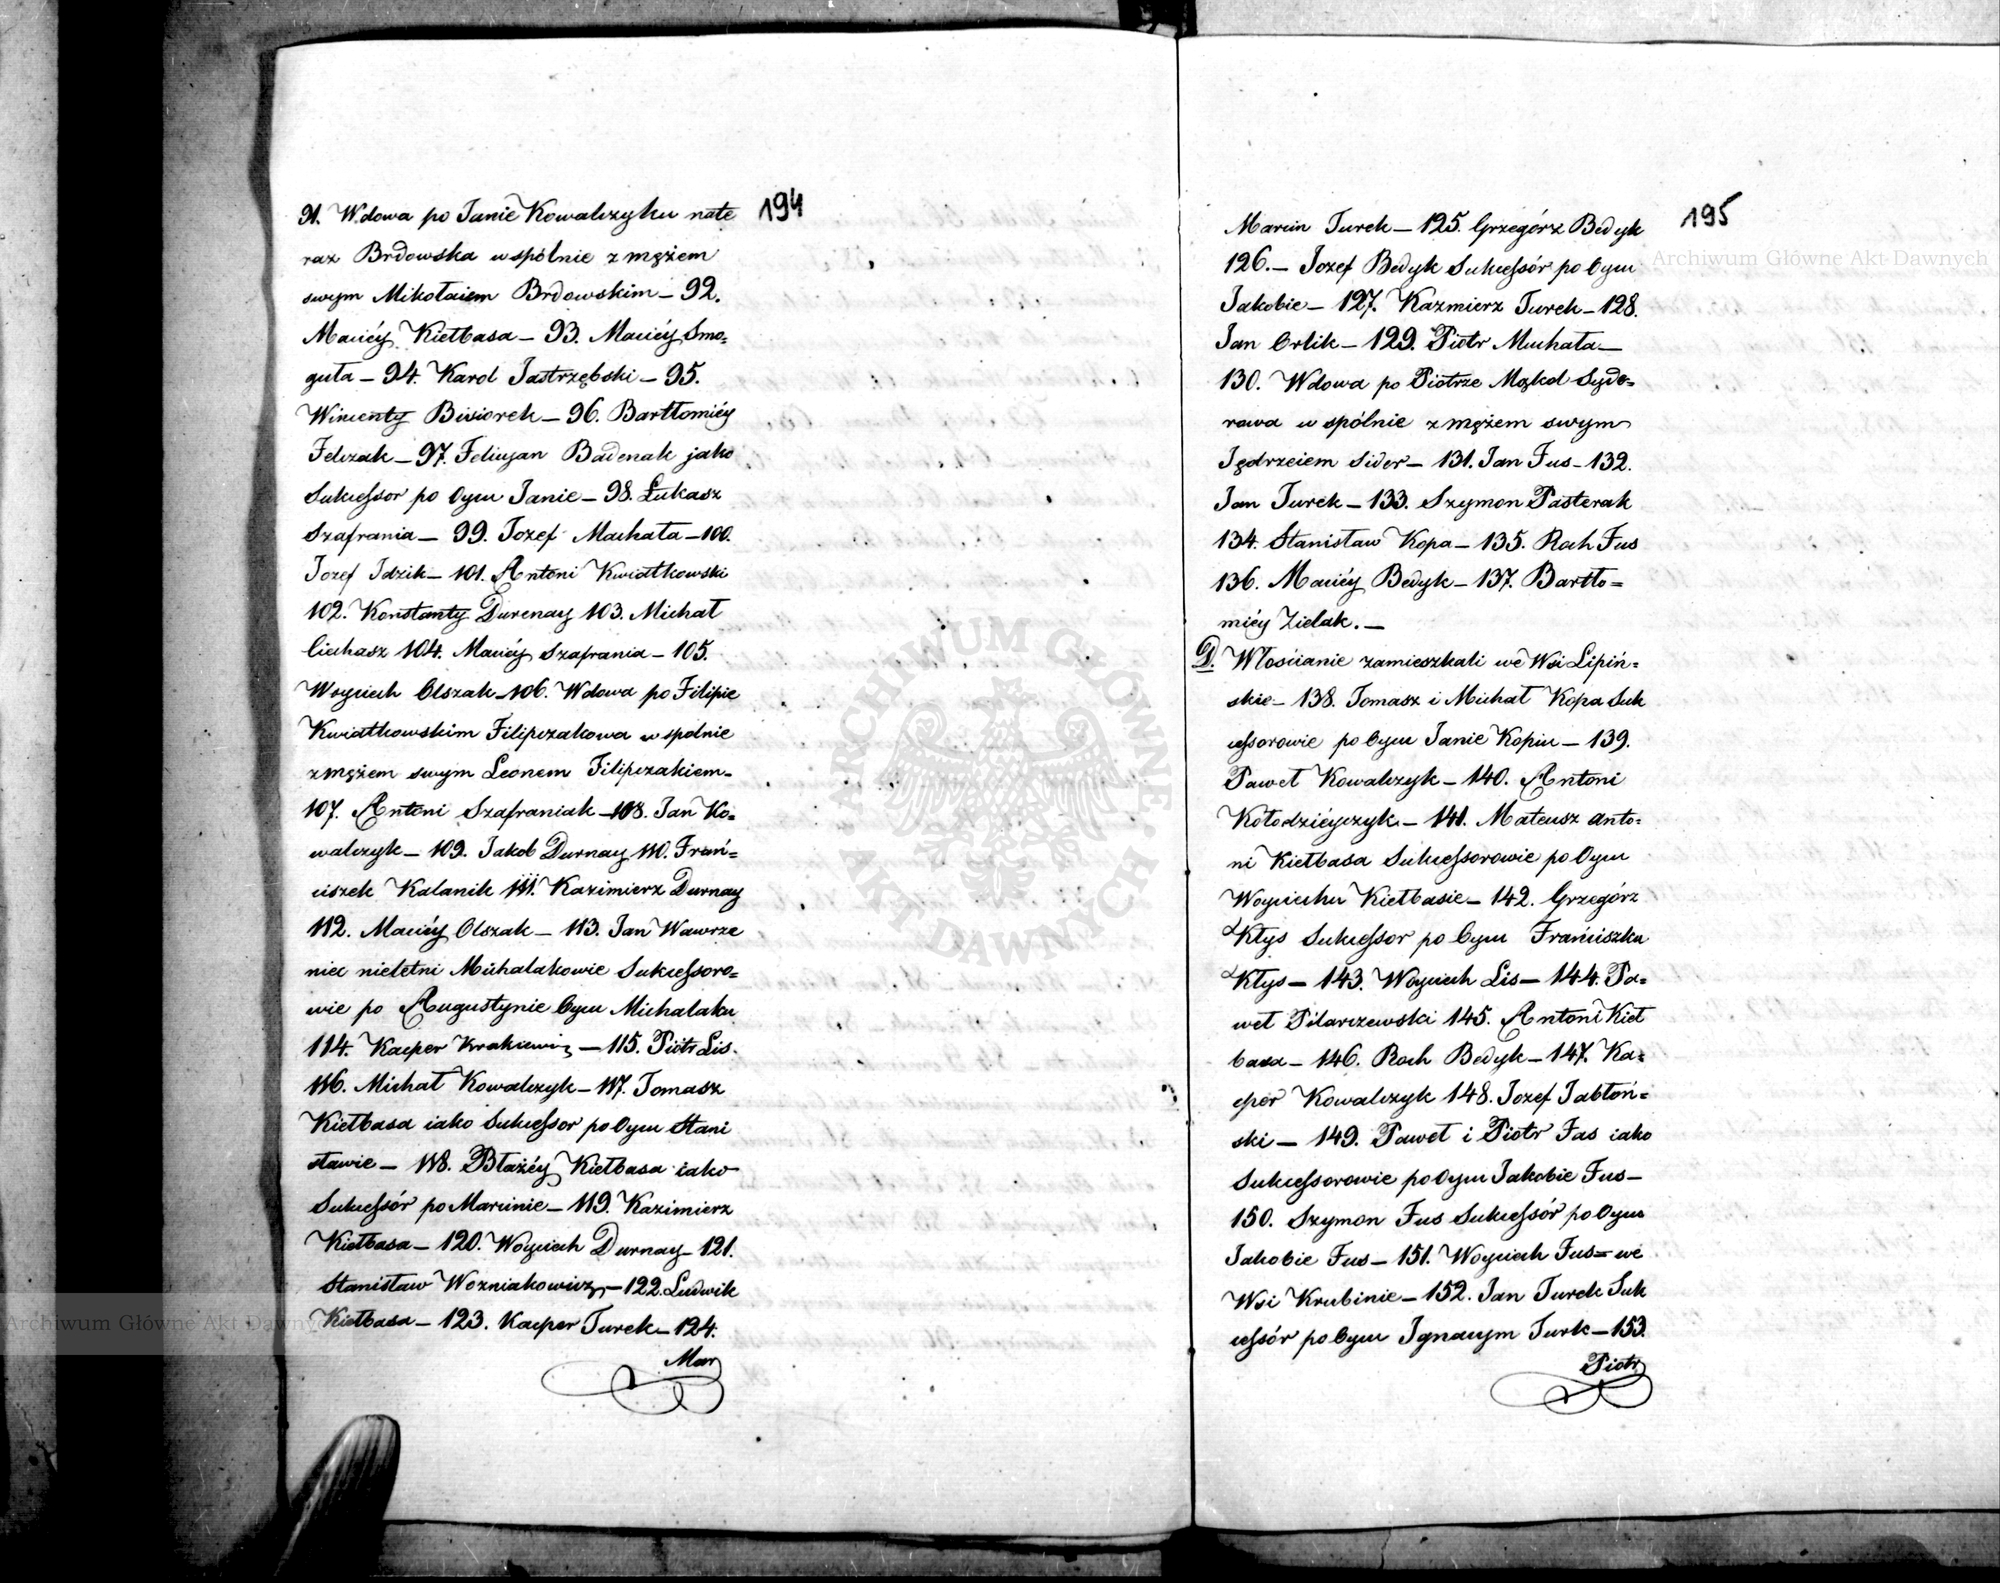 194
91. Wdowa po Janie Kowalczyku nate
raz Brdowska wspólnie z mężem
swym Mikołaiem Brdowskim – 92.
Maciéy Kiełbasa – 93. Maciéy Smo=
guła – 94. Karol Jastrzębski – 95.
Wincenty Bwiorek – 96. Bartłomiéy
Felczak – 97. Felicyan Badenak jako
Sukcessor po Oycu Janie – 98. Łukasz
Szafrania – 99. Jozef Machała – 100.
Jozef Jdzik – 101. Antoni Kwiatkowski
102. Konstanty Durenay 103. Michał
Ciechasz 104. Maciéy Szafrania – 105.
Woyciech Olszak – 106. Wdowa po Filipie
Kwiatkowskim Filipczakowa wspolnie
z mężem swym Leonem Filipczakiem –
107. Antoni Szafraniak – 108. Jan Ko=
walczyk – 109. Jakob Durnay 110. Fran=
ciszek Kalanik 111. Kazimierz Durnay
112. Maciéy Olszak – 113. Jan Wawrze
niec nieletni Michalakowie Sukcessoro=
wie po Augustynie Oycu Michalaku
114. Kacper Krakiewicz – 115. Piotr Lis.
116. Michał Kowalczyk – 117. Tomasz
Kiełbasa iako Sukcessor po Oycu Stani
sławie – 118. Błażéy Kiełbasa iako
Sukcessór po Marcinie – 119. Kazimierz
Kiełbasa – 120. Woyciech Durnay – 121.
Stanisław Wozniakowicz – 122. Ludwik
Kiełbasa – 123. Kacper Turek – 124.
Mar
195
Marcin Turek – 125. Grzegórz Bedyk
126. – Jozef Bedyk Sukcessór po Oycu
Jakobie – 127. Kazmierz Turek – 128.
Jan Orlik – 129. Piotr Muchała –
130. Wdowa po Piotrze Mąkol Sydo=
rowa wspólnie z mężem swym
Jędrzeiem Sidor – 131. Jan Fus – 132.
Jan Turek – 133. Szymon Pasterak
134. Stanisław Kopa – 135. Roch Fus
136. Maciéy Bedyk – 137. Bartło=
miéy Zielak. –
D. Włoscianie zamieszkali we Wsi Lipiń=
skie – 138. Tomasz i Michał Kopa Suk
cessorowie po Oycu Janie Kopiu – 139.
Paweł Kowalczyk – 140. Antoni
Kołodziéyczyk – 141. Mateusz Anto=
ni Kiełbasa Sukcessorowie po Oycu
Woyciechu Kiełbasie – 142. Grzegórz
Kłys Sukcessor po Oycu Franciszku
Kłys – 143. Woyciech Lis – 144. Pa=
weł Pilarczewski 145. Antoni Kieł
basa – 146. Roch Bedyk – 147. Ka=
cper Kowalczyk 148. Jozef Jabłoń=
ski – 149. Paweł i Piotr Fas iako
Sukcessorowie po Oycu Jakobie Fus –
150. Szymon Fus Sukcessór po Oycu
Jakobie Fus – 151. Woyciech Fus = we
Wsi Krubinie – 152. Jan Turek Suk
cessór po Oycu Jgnacym Turk – 153.
Piotr
Archiwum Główne Akt Dawnych
Archiwum Główne Akt Dawnych
ARCHIWUM GŁÓWNE AKT DAWNYCH